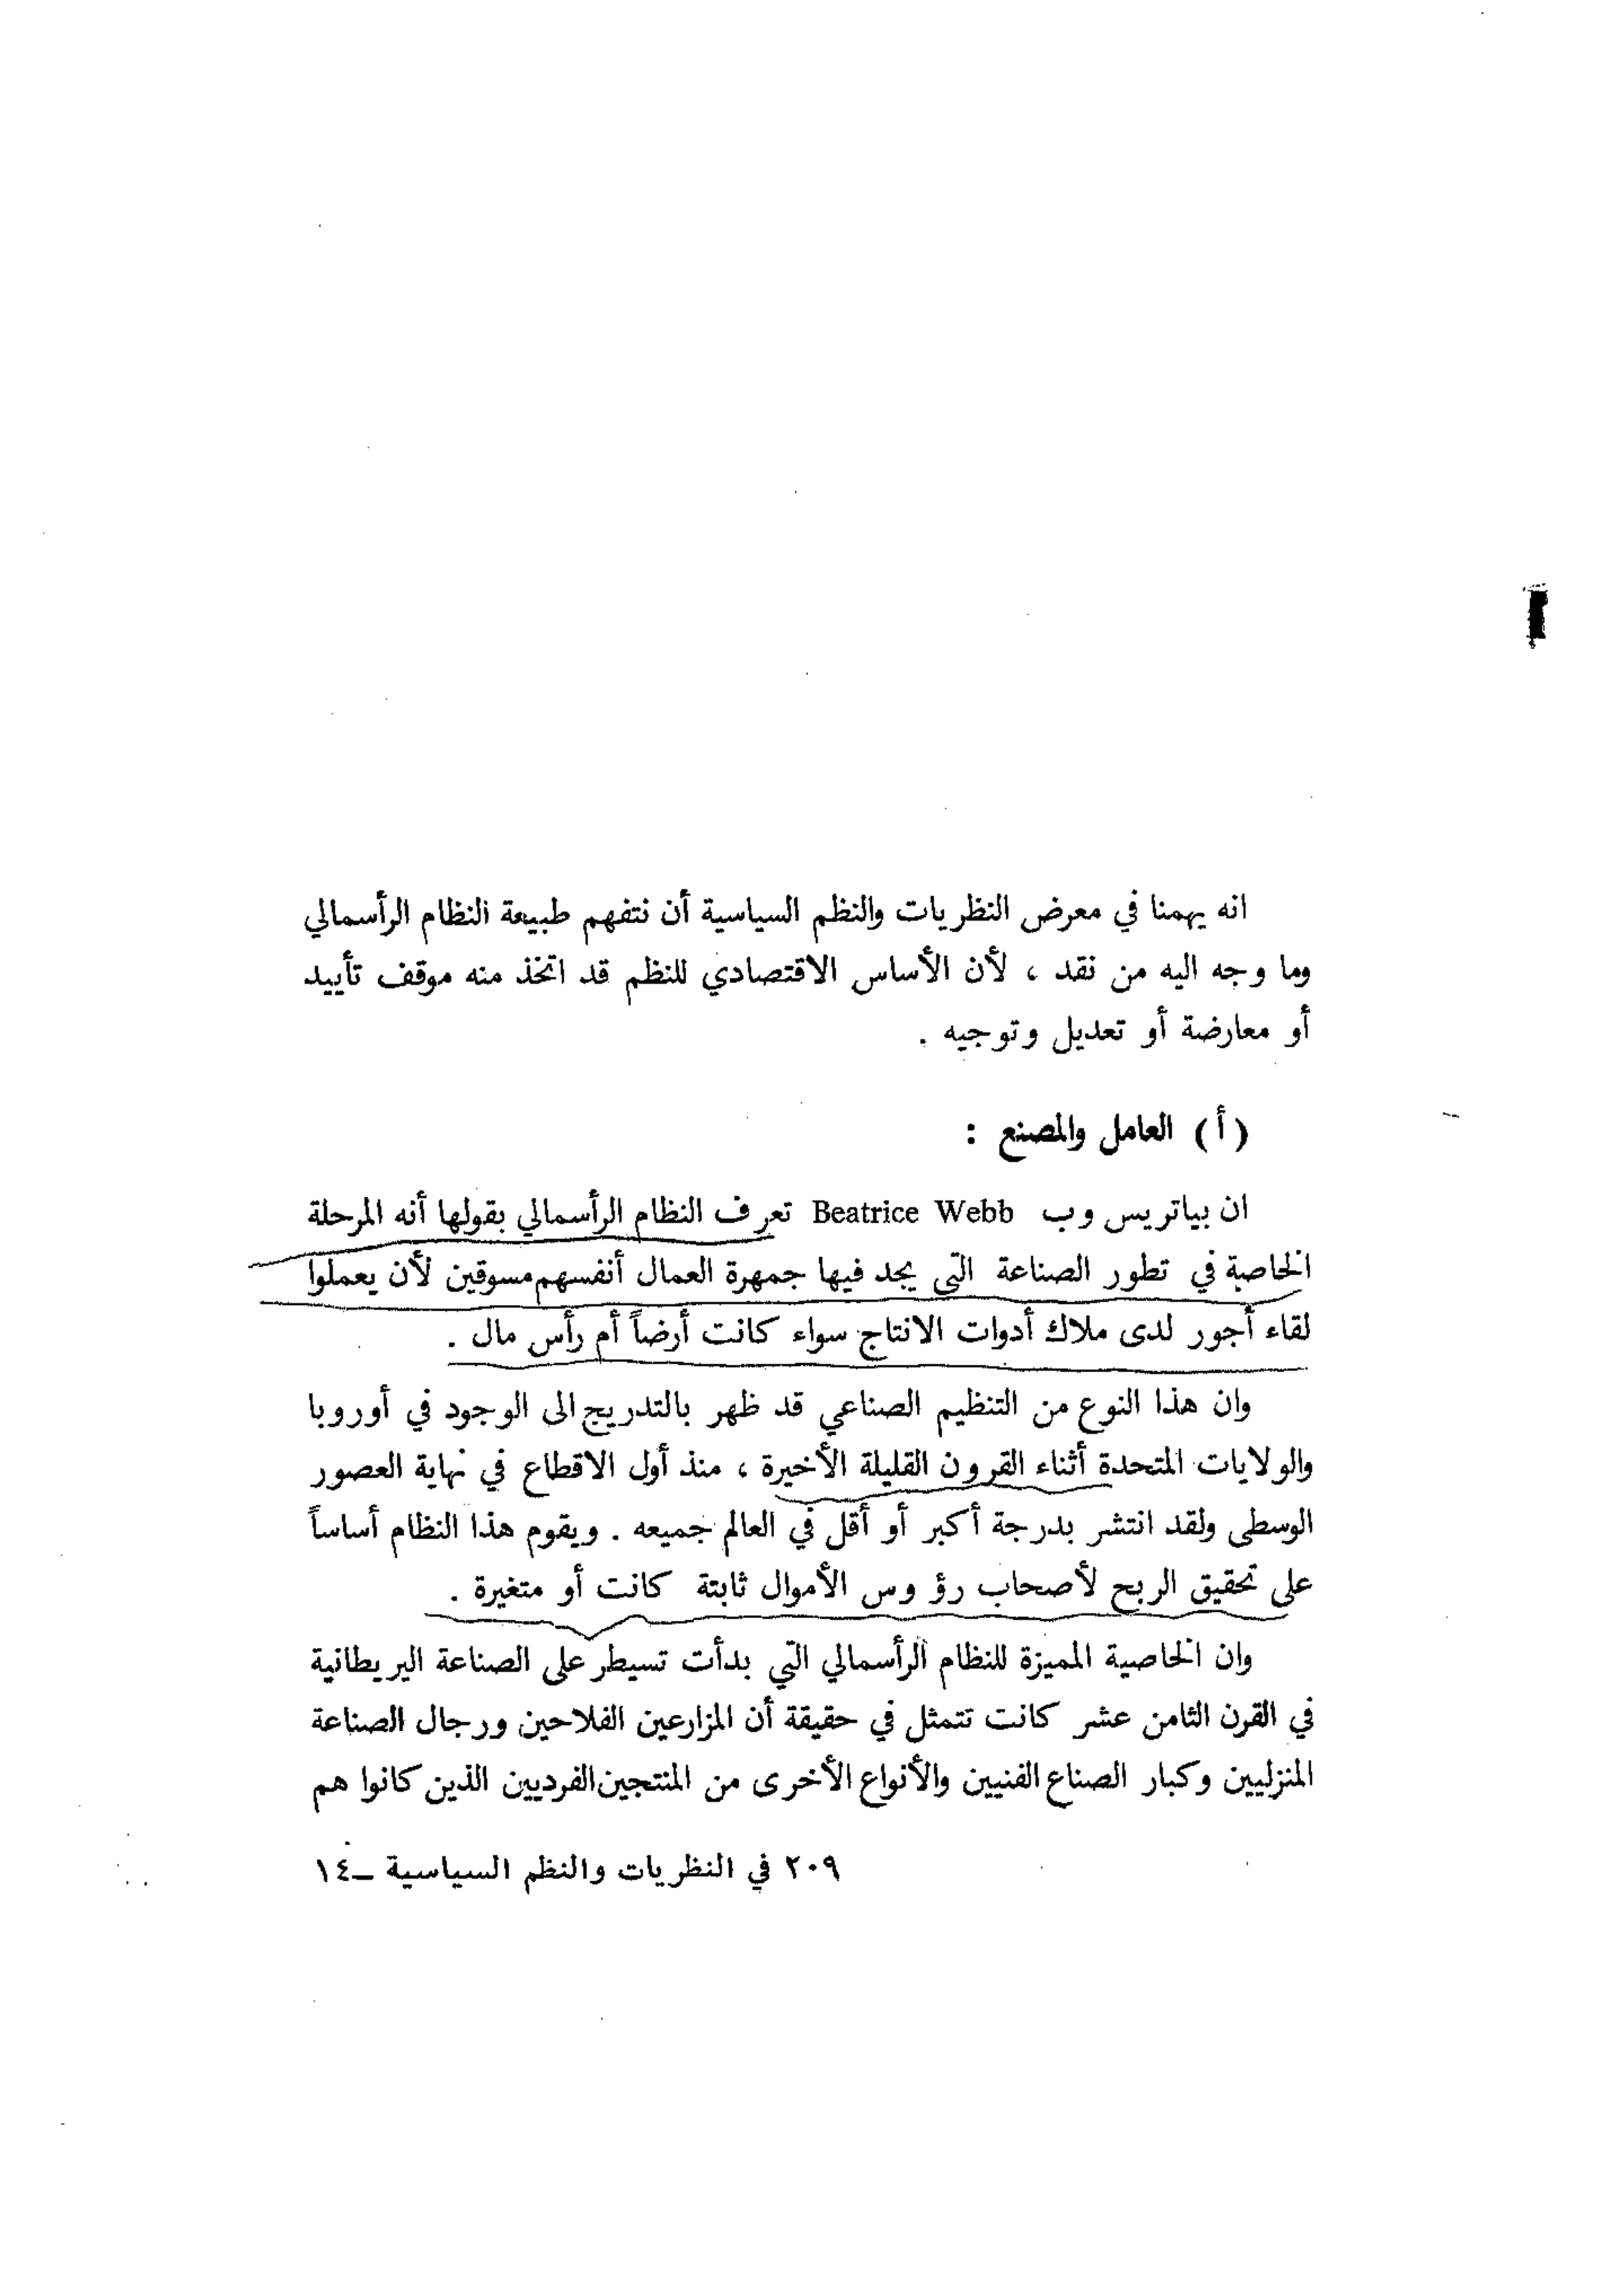 انه يهمنا في معرض النظريات والنظم السياسية أن نتفهم طبيعة النظام الرأسمالي
وما وجه اليه من نقد ، لأن الأساس الاقتصادي للنظم قد اتخذ منه موقف تأييد
أو معارضة أو تعديل وتوجيه .
(أ) العامل والمصنع :
ان بياتريس وب Beatrice Webb تعرف النظام الرأسمالي بقولها أنه المرحلة
الخاصة في تطور الصناعة التي يجد فيها جمهرة العمال أنفسهم مسوقين لأن يعملوا
لقاء أجور لدى ملاك أدوات الانتاج سواء كانت أرضاً أم رأس مال .
وان هذا النوع من التنظيم الصناعي قد ظهر بالتدريج الى الوجود في أوروبا
والولايات المتحدة أثناء القرون القليلة الأخيرة ، منذ أول الاقطاع في نهاية العصور
الوسطى ولقد انتشر بدرجة أكبر أو أقل في العالم جميعه . ويقوم هذا النظام أساساً
على تحقيق الربح لأصحاب رؤوس الأموال ثابتة كانت أو متغيرة .
وان الخاصية المميزة للنظام الرأسمالي التي بدأت تسيطر على الصناعة البريطانية
في القرن الثامن عشر كانت تتمثل في حقيقة أن المزارعين الفلاحين ورجال الصناعة
المنزليين وكبار الصناع الفنيين والأنواع الأخرى من المنتجين الفرديين الذين كانوا هم
٢٠٩ في النظريات والنظم السياسية ــ ١٤